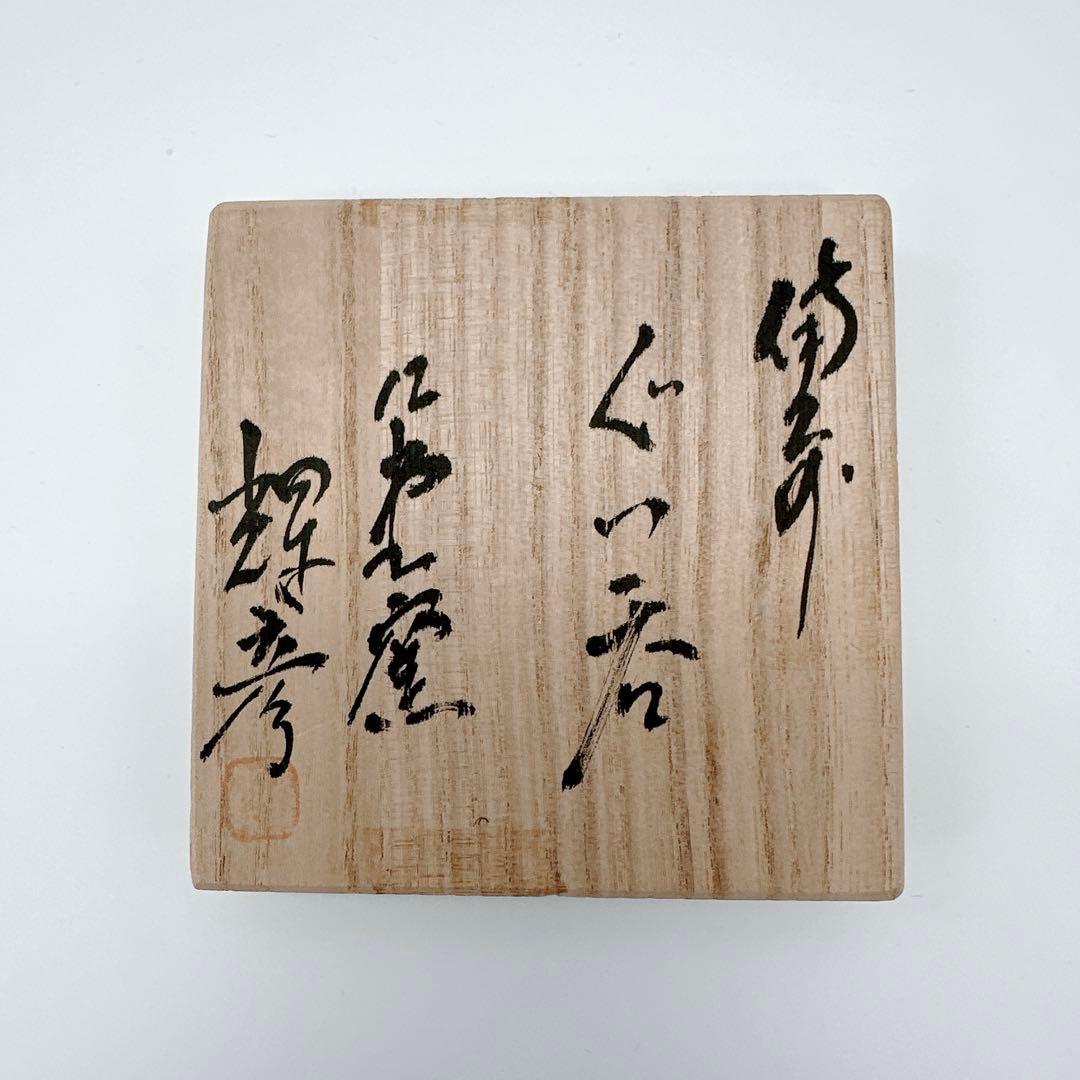 備前
ぐい呑
窯
輝彦